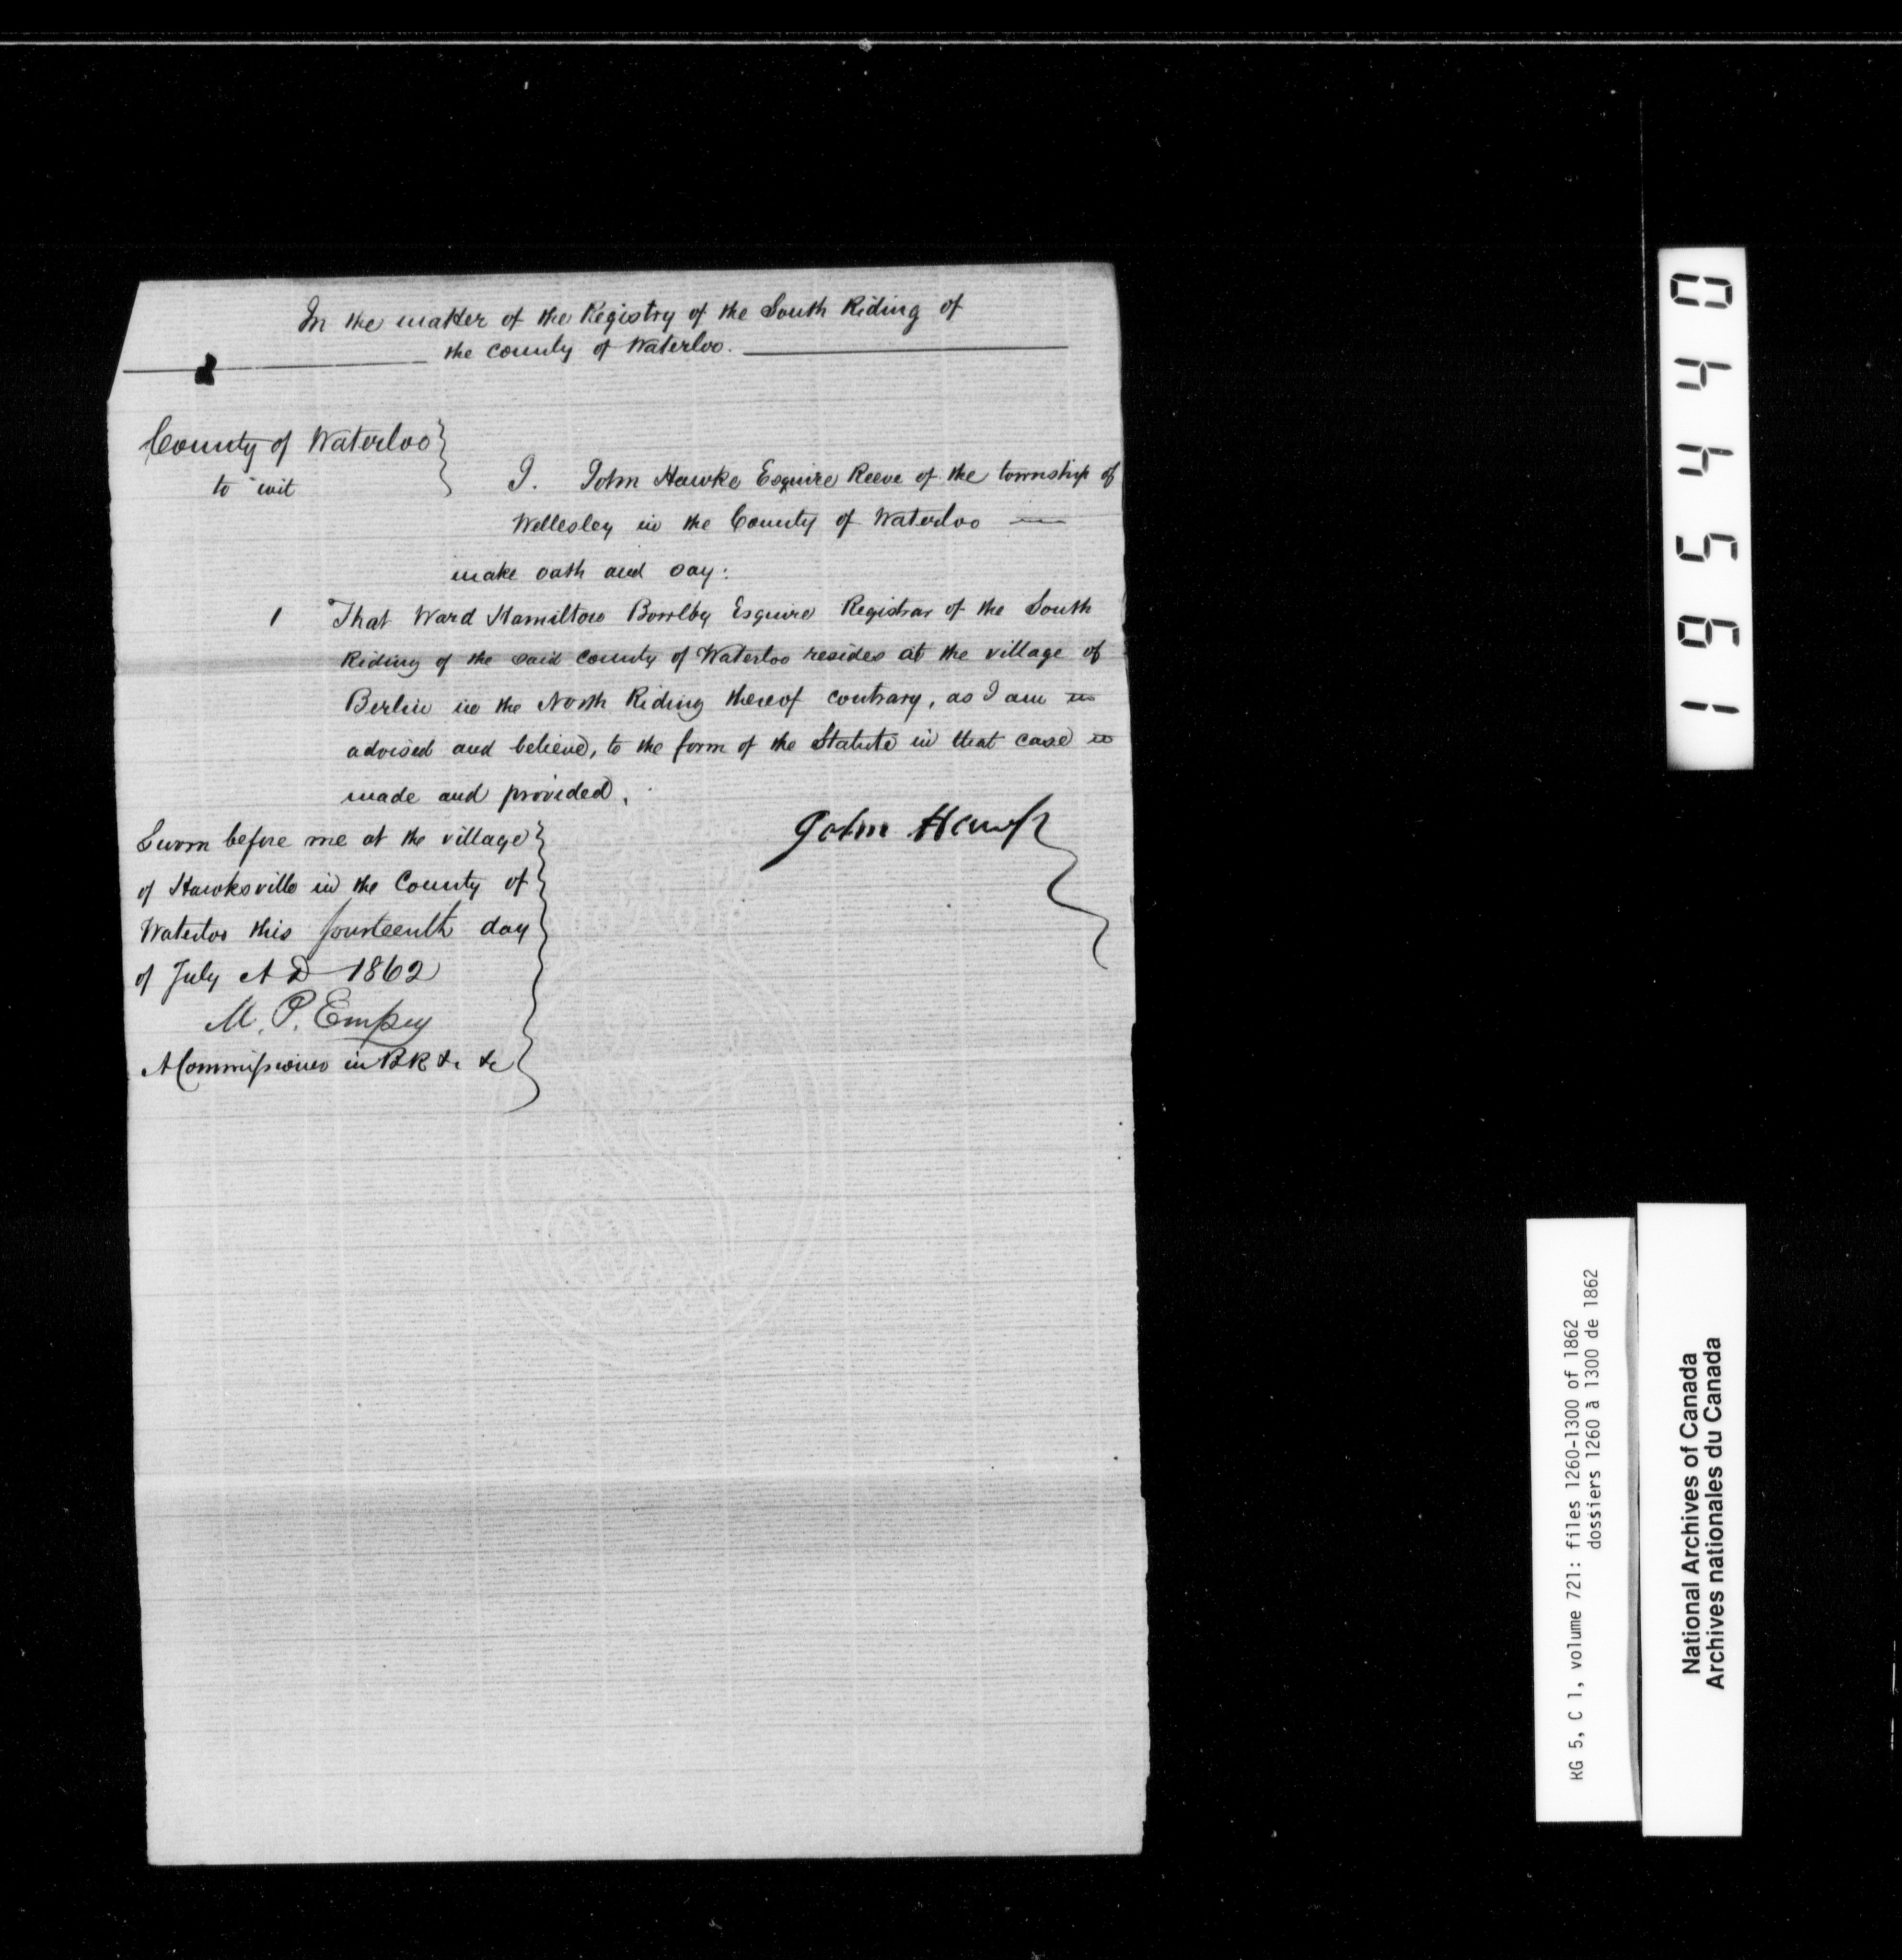 In the matter of the Registry of the South Riding of
the county of Waterloo.
County of Waterloo
to wit
I. John Hawke Esquire Reeve of the township of
Wellesley in the County of Waterloo
make oath and say:
1 That Ward Hamilton Bowlby Esquire Registrar of the South
Riding of the said county of Waterloo resides at the village of
Berlin in the North Riding thereof contrary, as I am
advised and believe, to the form of the Statute in that case
made and provided.
Sworn before me at the village
of Hawksville in the County of
Waterloo this fourteenth day
of July A D 1862
M. P. Empey
A Commissioner in B R &c &c
John Hawk
195440
RG 5, C 1, volume 721: files 1260-1300 of 1862
dossiers 1260 à 1300 de 1862
National Archives of Canada
Archives nationales du Canada